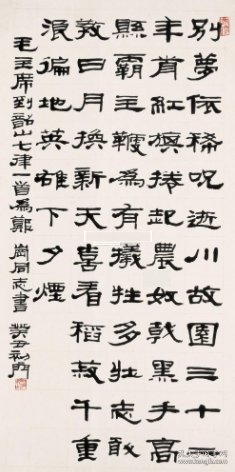 別夢依稀呪逝川故園三十二
年前紅旗捲起農奴戟黑手高
縣霸主鞭為有犧牲多壮志敢
教日月換新天喜看稻菽千重
浪徧地英雄下夕煙
毛主席到韶山七律一首為鄭
同志書 癸丑